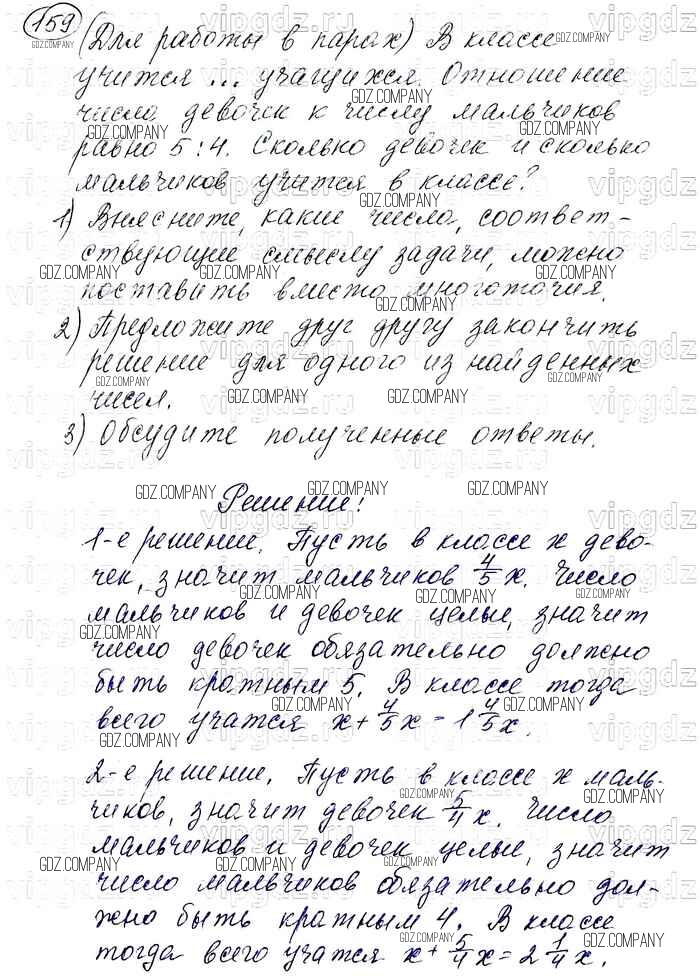 159 (Для работы в парах) В классе
учится ... учащихся. Отношение
числа девочек к числу мальчиков
равно 5:4. Сколько девочек и сколько
мальчиков учится в классе?
1) Выясните, какие числа, соответ-
ствующие смыслу задачи, можно
поставить вместо многоточия.
2) Предложите друг другу закончить
решение для одного из найденных
чисел.
3) Обсудите полученные ответы.
Решение!
1-е решение. Пусть в классе x дево-
чек, значит мальчиков 4/5 x. Число
мальчиков и девочек целые, значит
число девочек обязательно должно
быть кратным 5. В классе тогда
всего учатся x + 4/5 x = 1 4/5 x.
2-е решение. Пусть в классе x маль-
чиков, значит девочек 5/4 x. Число
мальчиков и девочек целые, значит
число мальчиков обязательно дол-
жно быть кратным 4. В классе
тогда всего учатся x + 5/4 x = 2 1/4 x.